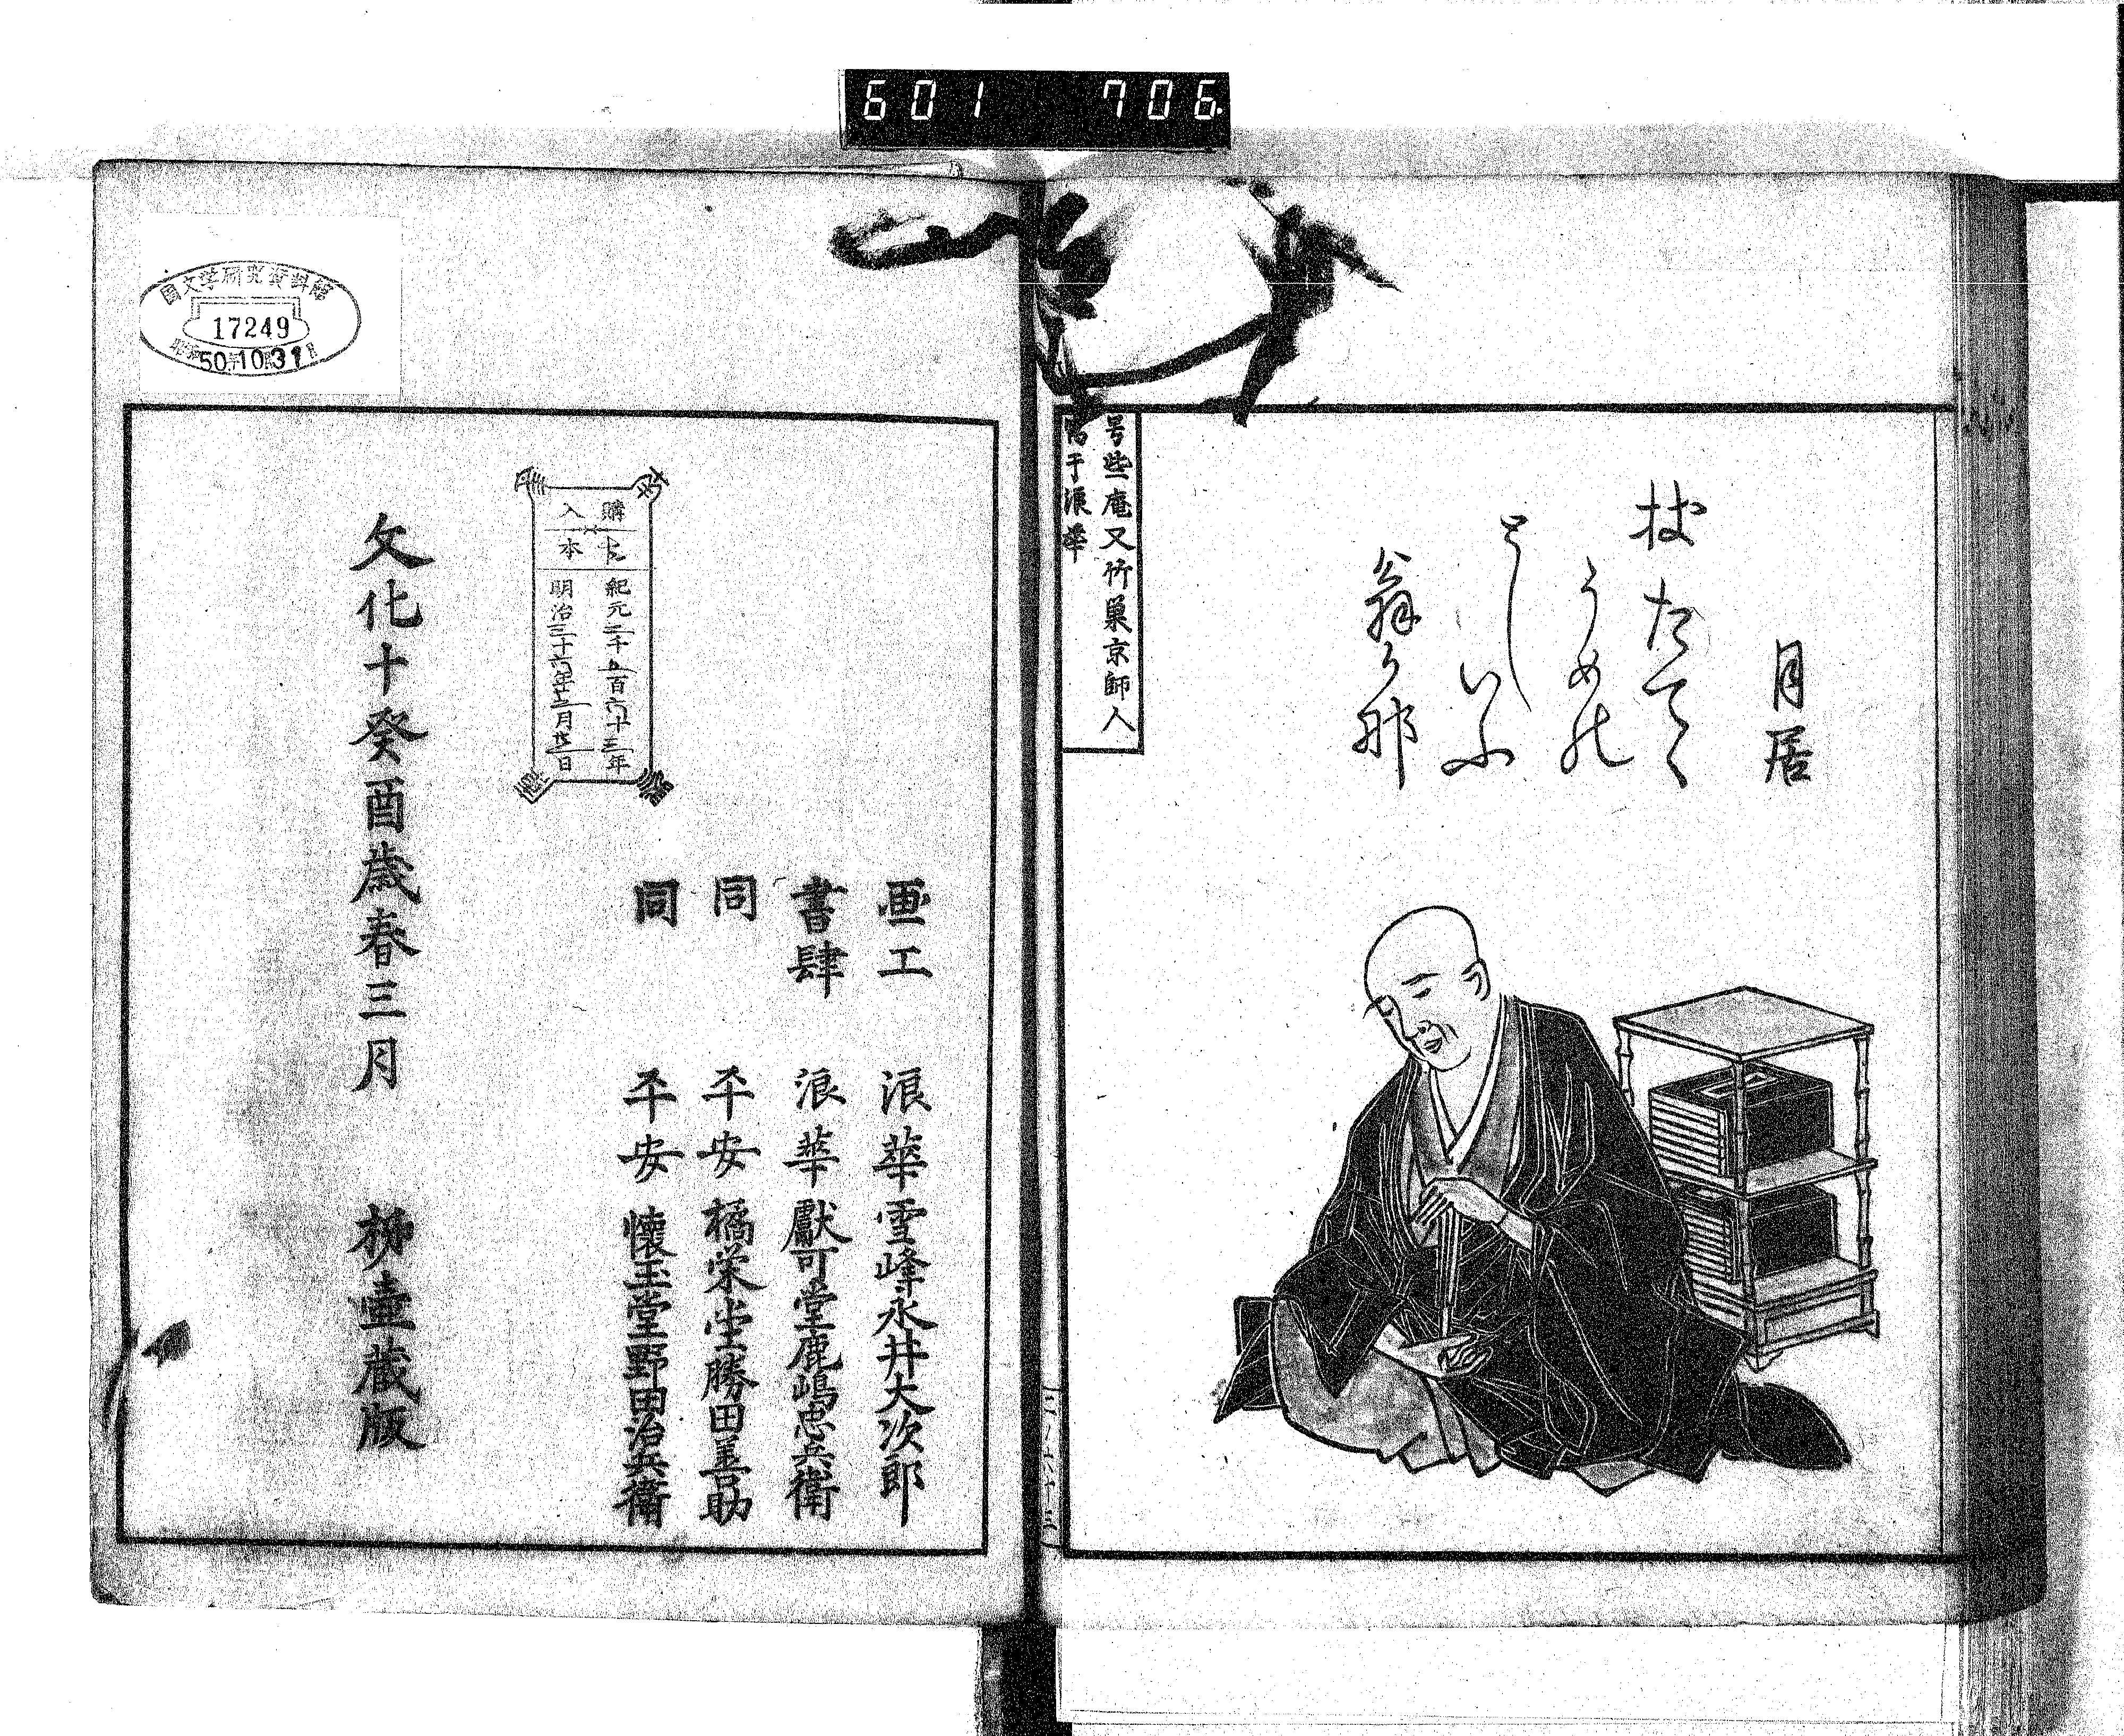 601 706
月居
杖たてゝ
うめの
としいふ
翁かな
号些庵又竹巣京師人
于浪華
画工 浪華雪峰永井大次郎
書肆 浪華獻可堂鹿嶋忠兵衛
同 平安橘栄堂勝田善助
同 平安懐玉堂野田治兵衛
購入
本
紀元二千五百六十三年
明治三十六年 月 日
文化十癸酉歳春三月 栁壷蔵版
國文学研究資料館
17249
50.10.31